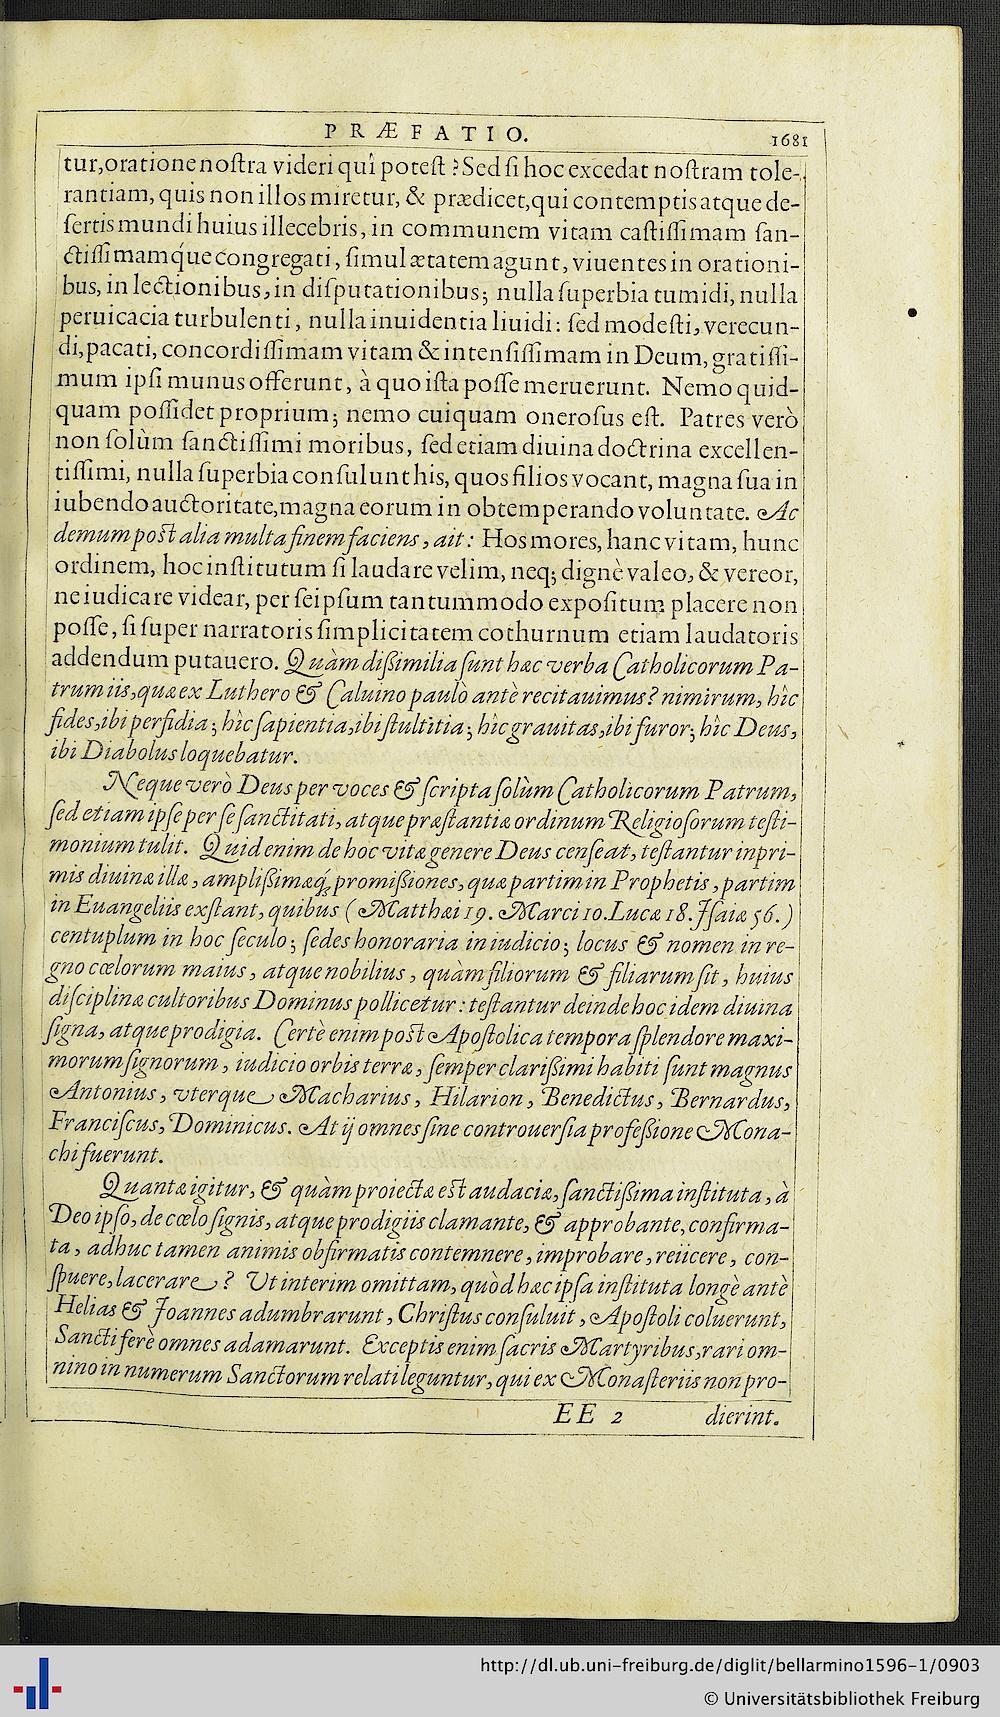 PRÆFATIO. 1681
tur,oratione noſtra videri quî poteſt ? Sed ſi hoc excedat noſtram tole-
rantiam, quis non illos miretur, & prædicet,qui contemptis atque de-
ſertis mundi huius illecebris, in communem vitam caſtiſſimam ſan-
ctiſſimamq́ue congregati, ſimul ætatem agunt, viuentes in orationi-
bus, in lectionibus, in diſputationibus; nulla ſuperbia tumidi, nulla
peruicacia turbulenti, nulla inuidentia liuidi: ſed modeſti, verecun-
di,pacati, concordiſſimam vitam & intenſiſſimam in Deum, gratiſſi-
mum ipſi munus offerunt, à quo iſta poſſe meruerunt. Nemo quid-
quam poſſidet proprium; nemo cuiquam oneroſus eſt. Patres verò
non ſolùm ſanctiſſimi moribus, ſed etiam diuina doctrina excellen-
tiſſimi, nulla ſuperbia conſulunt his, quos filios vocant, magna ſua in
iubendo auctoritate,magna eorum in obtemperando voluntate. Ac
demum poſt alia multa finem faciens, ait: Hos mores, hanc vitam, hunc
ordinem, hoc inſtitutum ſi laudare velim, neq; dignè valeo, & vereor,
ne iudicare videar, per ſeipſum tantummodo expoſitum placere non
poſſe, ſi ſuper narratoris ſimplicitatem cothurnum etiam laudatoris
addendum putauero. Quàm diſſimilia ſunt hæc verba Catholicorum Pa-
trum iis,quæ ex Luthero & Caluino paulò antè recitauimus? nimirum, hîc
fides,ibi perfidia; hîc ſapientia,ibi ſtultitia; hîc grauitas,ibi furor; hîc Deus,
ibi Diabolus loquebatur.
Neque verò Deus per voces & ſcripta ſolùm Catholicorum Patrum,
ſed etiam ipſe per ſe ſanctitati, atque præſtantiæ ordinum Religioſorum teſti-
monium tulit. Quid enim de hoc vitæ genere Deus cenſeat, teſtantur inpri-
mis diuinæ illæ, ampliſſimæq́; promiſſiones, quæ partim in Prophetis, partim
in Euangeliis exſtant, quibus (Matthæi 19. Marci 10. Lucæ 18. Iſaiæ 56.)
centuplum in hoc ſeculo; ſedes honoraria in iudicio; locus & nomen in re-
gno cœlorum maius, atque nobilius, quàm filiorum & filiarum ſit, huius
diſciplinæ cultoribus Dominus pollicetur: teſtantur deinde hoc idem diuina
ſigna, atque prodigia. Certè enim poſt Apoſtolica tempora ſplendore maxi-
morum ſignorum, iudicio orbis terræ, ſemper clariſſimi habiti ſunt magnus
Antonius, vterque Macharius, Hilarion, Benedictus, Bernardus,
Franciſcus, Dominicus. At ij omnes ſine controuerſia profeſſione Mona-
chi fuerunt.
Quantæ igitur, & quàm proiectæ eſt audaciæ, ſanctiſſima inſtituta, à
Deo ipſo, de cœlo ſignis, atque prodigiis clamante, & approbante, confirma-
ta, adhuc tamen animis obfirmatis contemnere, improbare, reiicere, con-
ſpuere, lacerare? Vt interim omittam, quòd hæc ipſa inſtituta longè antè
Helias & Ioannes adumbrarunt, Chriſtus conſuluit, Apoſtoli coluerunt,
Sancti ferè omnes adamarunt. Exceptis enim ſacris Martyribus,rari om-
nino in numerum Sanctorum relati leguntur, qui ex Monaſteriis non pro-
EE 2 dierint.
http://dl.ub.uni-freiburg.de/diglit/bellarmino1596-1/0903
© Universitätsbibliothek Freiburg